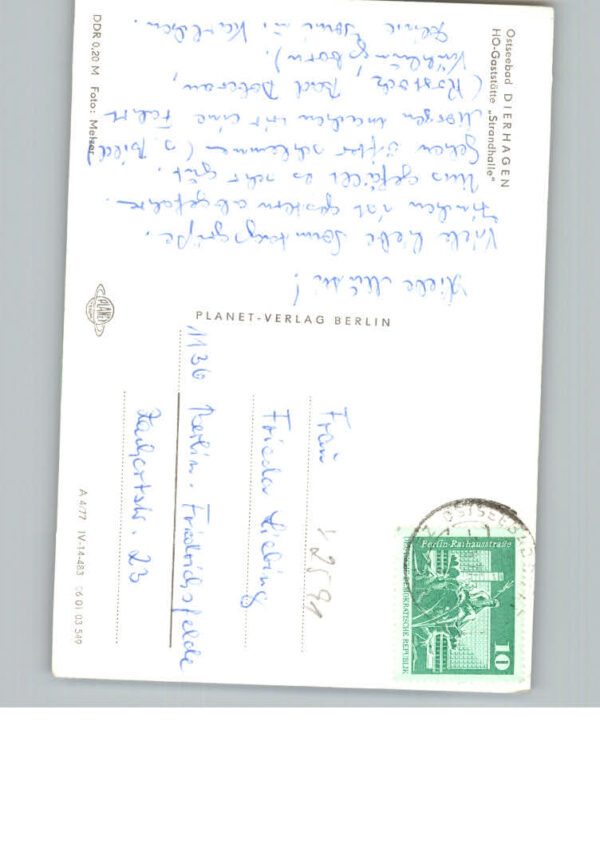 Ostseebad DIERHAGEN
HO-Gaststätte „Strandhalle"
Liebe Mutti!
Viele liebe Sonntagsgrüße.
ist gestern abgefahren.
Uns gefällt es sehr gut.
Gehen öfter schlemmen (s. Bild)
Morgen machen wir eine Fahrt
(Rostock, Bad Doberan,
Kühlungsborn).
DDR 0,20 M Foto: Melzer
PLANET-VERLAG BERLIN
PLANET
Frau
Frieda Liebing
1136 Berlin-Friedrichsfelde
23
V 2591
OSTSEEBAD
Berlin-Rathausstraße
DEUTSCHE DEMOKRATISCHE REPUBLIK
10
A 4/77 IV-14-483 06 01 03 549